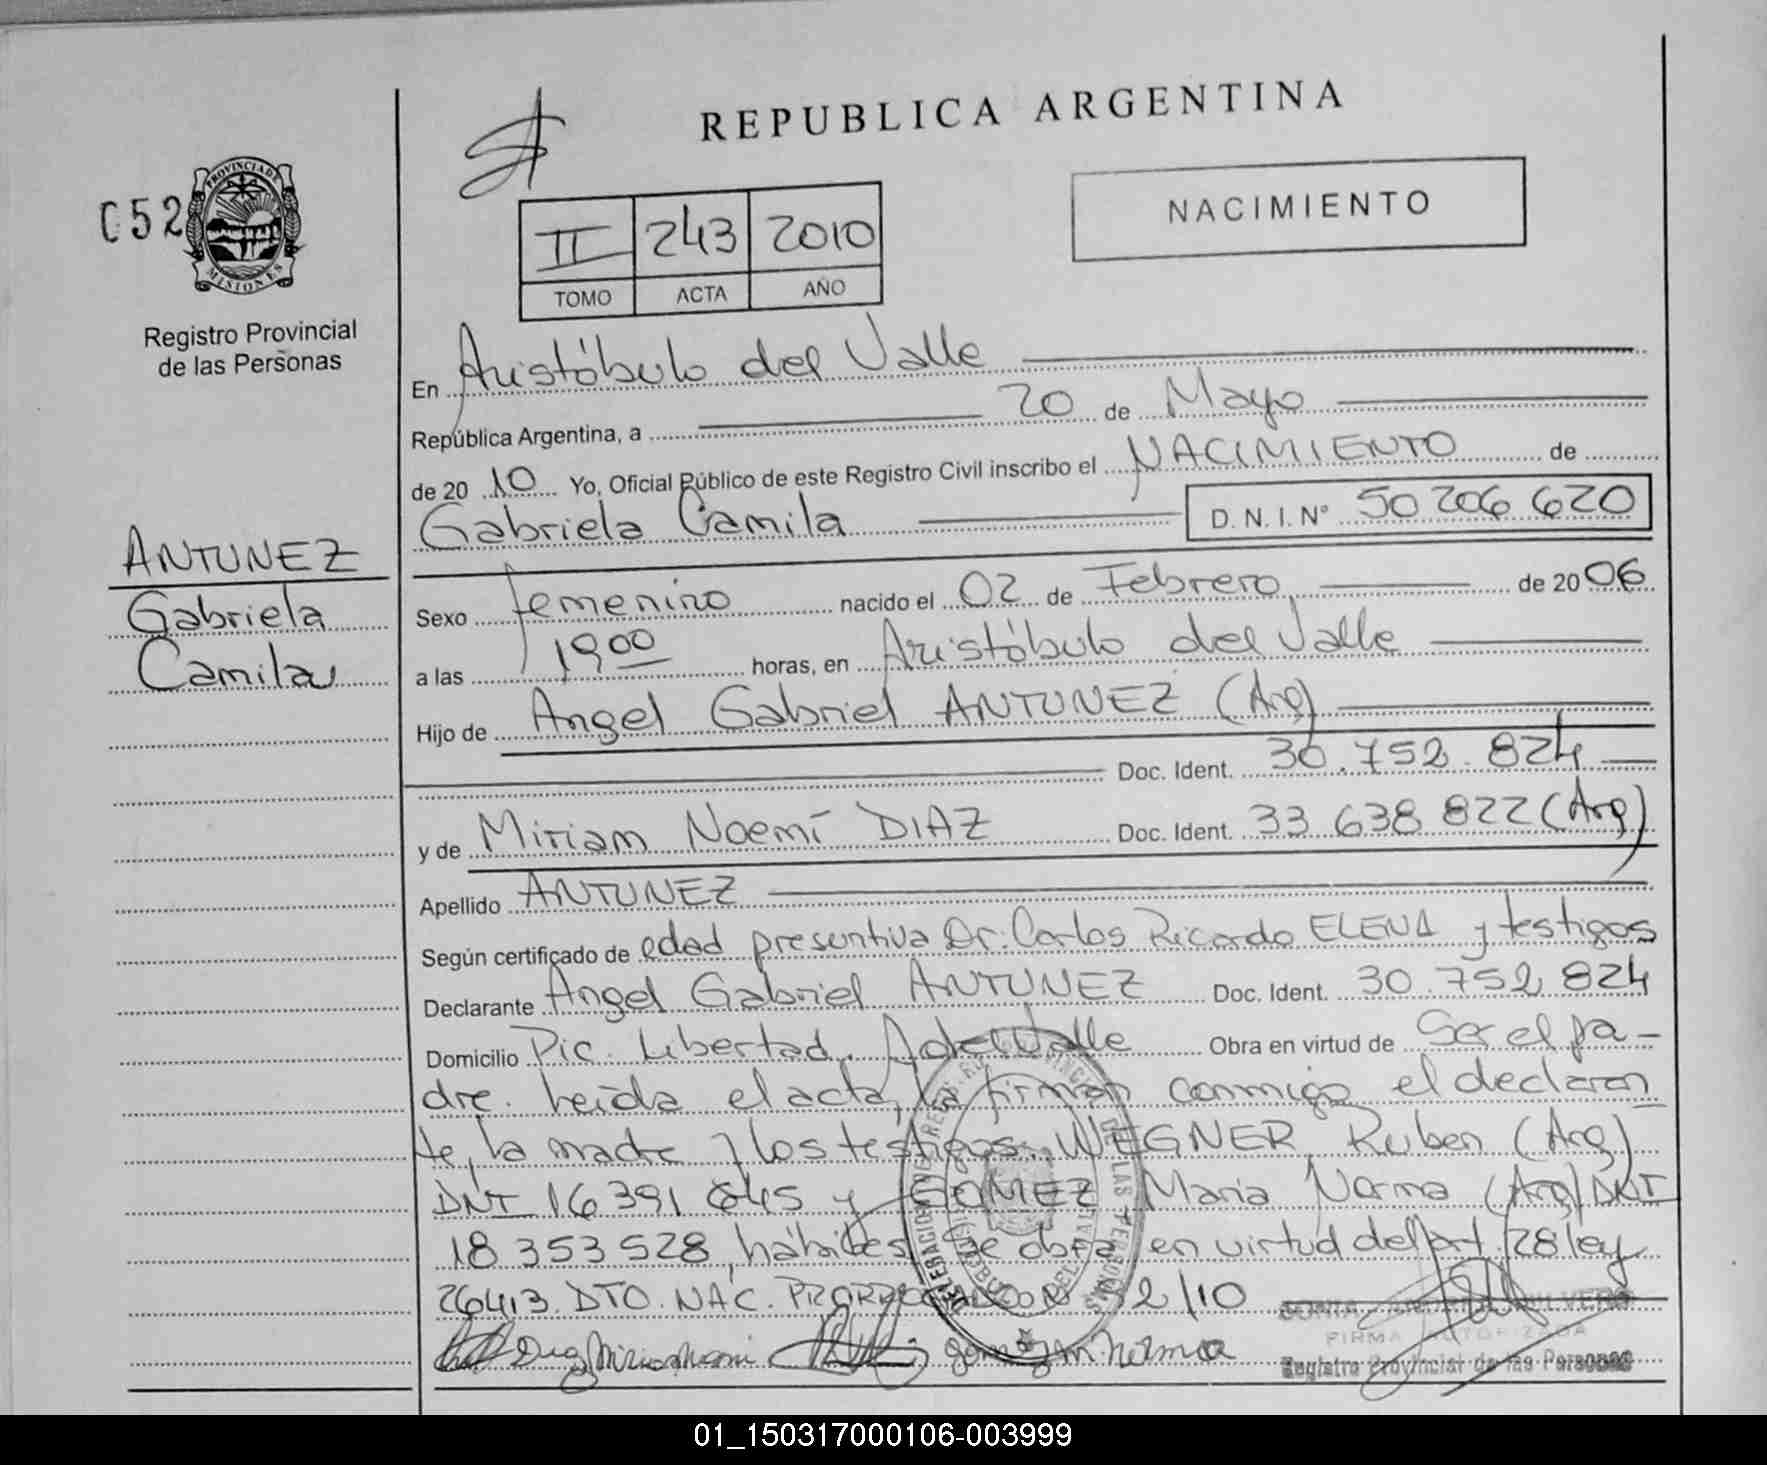 REPUBLICA ARGENTINA
NACIMIENTO
052
PROVINCIA DE
MISIONES
Registro Provincial
de las Personas
II 243 2010
TOMO ACTA AÑO
En Aristóbulo del Valle
República Argentina, a 20 de Mayo
de 20 10 Yo, Oficial Público de este Registro Civil inscribo el NACIMIENTO de
Gabriela Camila D.N.I.Nº 50 206 620
ANTUNEZ
Gabriela
Camila
Sexo femenino nacido el 02 de Febrero de 20 06
a las 19 00 horas, en Aristóbulo del Valle
Hijo de Angel Gabriel ANTUNEZ (Arg)
Doc. Ident. 30.752.824
y de Miriam Noemí DIAZ Doc. Ident. 33 638 822 (Arg)
Apellido ANTUNEZ
Según certificado de edad presuntiva Dr. Carlos Ricardo ELENA y testigos
Declarante Angel Gabriel ANTUNEZ Doc. Ident. 30.752.824
Domicilio Pic. Libertad. A del Valle Obra en virtud de Ser el pa-
dre. Leída el acta, la firman conmigo el declaran
te, la madre y los testigos: WEGNER Ruben (Arg)
DNI 16 391 645 y GOMEZ Maria Norma (Arg) DNI
18 353 528, hábiles. Se obra en virtud del Art. 28 ley
26413. DTO. NAC. 2/10
FIRMA AUTORIZADA
Registro Provincial de las Personas
01_150317000106-003999